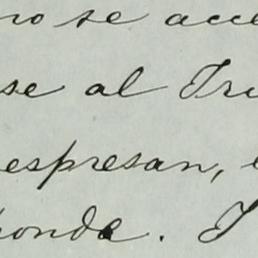 no se acce
se al Tri
espresan, e
onde. I